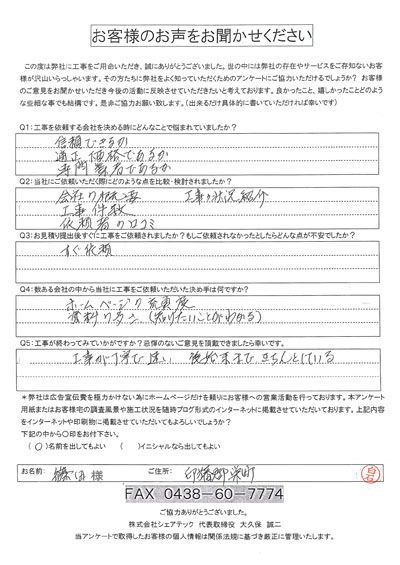 お客様のお声をお聞かせください
この度は弊社に工事をご用命いただき、誠にありがとうございました。世の中には弊社の存在やサービスをご存知ないお客様
が沢山いらっしゃいます。その方たちに弊社をよく知っていただくためのアンケートにご協力いただけるでしょうか？ お客様
のご意見をお聞かせいただき今後の活動に反映させていきたいと考えております。良かったこと、嬉しかったことどのよう
な些細な事でも結構です。是非ご協力お願い致します。（出来るだけ具体的に書いていただければ幸いです）
Q1:工事を依頼する会社を決める時にどんなことで悩まれていましたか？
信頼できるか
適正価格であるか
専門業者であるか
Q2:当社にご依頼いただく際にどのような点を比較・検討されましたか？
会社の概要 工事の状況紹介
工事件数
依頼者の口コミ
Q3:お見積り提出後すぐに工事をご依頼されましたか？もしご依頼されなかったとしたらどんな点が不安でしたか？
すぐ依頼
Q4:数ある会社の中から当社に工事をご依頼いただいた決め手は何ですか？
ホームページの充実度
資料の多さ（知りたいことがわかる）
Q5:工事が終わってみていかがですか？忌憚のないご意見を頂戴できましたら幸いです。
工事が丁寧で速い 後始末まできちんとしている
＊弊社は広告宣伝費を極力かけない為にホームページだけを頼りにお客様への営業活動を行っております。本アンケート
用紙またはお客様宅の調査風景や施工状況を随時ブログ形式のインターネットに掲載させていただいております。上記内容
をインターネットや印刷物に掲載させていただいてもよろしいでしょうか？
下記の中から○印をお付下さい。
（○）名前を出してもよい （ ）イニシャルなら出してもよい
お名前: 様 ご住所: 印旛郡栄町
FAX 0438-60-7774
ご協力ありがとうございました。
株式会社シェアテック 代表取締役 大久保 誠二
当アンケートで取得したお客様の個人情報は関係法規に基づき厳正に管理いたします。